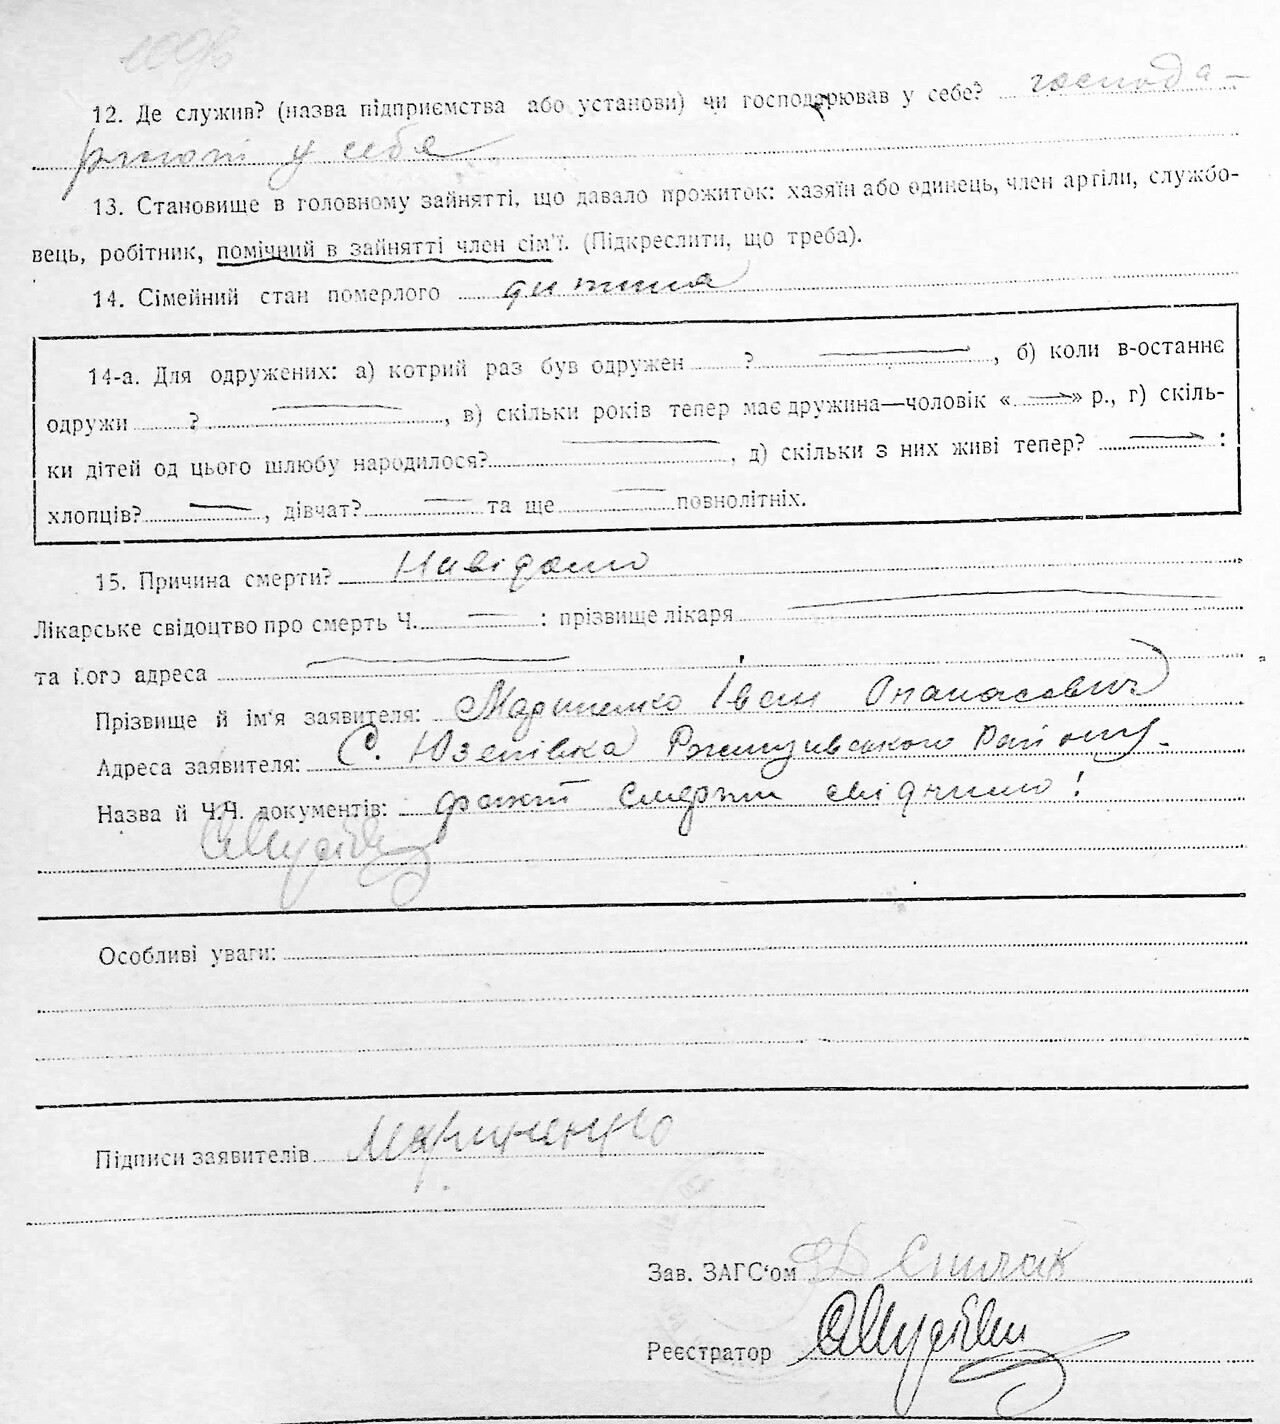 12. Де служив? (назва підприємства або установи) чи господарював у себе? господа-
рюют у себе
13. Становище в головному зайнятті, що давало прожиток: хазяїн або одинець, член артіли, службо-
вець, робітник, помічний в зайнятті член сім'ї. (Підкреслити, що треба).
14. Сімейний стан померлого дитина
14-а. Для одружених: а) котрий раз був одружен ? —, б) коли в-останнє
одружи ? —, в) скільки років тепер має дружина—чоловік «—» р., г) скіль-
ки дітей од цього шлюбу народилося? —, д) скільки з них живі тепер? — :
хлопців? —, дівчат? — та ще — повнолітніх.
15. Причина смерти? Невідомо
Лікарське свідоцтво про смерть Ч. — : прізвище лікаря —
та його адреса —
Прізвище й ім'я заявителя: Мариненко Іван Опанасович
Адреса заявителя: С. Юзепівка Ржищивського Району.
Назва й Ч.Ч. документів: факт смерти свідчимо!
Особливі уваги:
Підписи заявителів Мариненко
Зав. ЗАГС'ом Спичак
Реєстратор